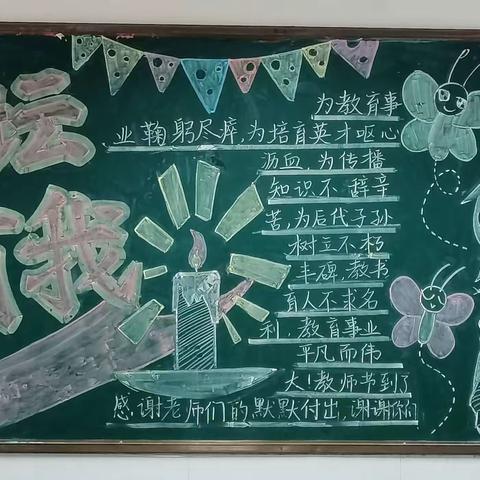 坛
我
为教育事
业鞠躬尽瘁，为培育英才呕心
沥血，为传播
知识不辞辛
苦，为后代子孙
树立不朽
丰碑，教书
育人不求名
利，教育事业
平凡而伟
大！教师节到了
感谢老师们的默默付出，谢谢你们